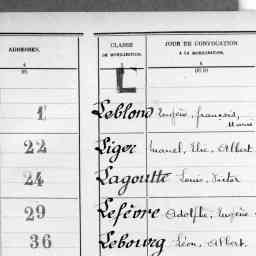 ADRESSES.
4
CLASSE
DE MOBILISATION.
JOUR DE CONVOCATION
À LA MOBILISATION.
L
1 Leblond Eugène, françois,
22 Liger Marcel, Elie, Albert
24 Lagoutte Louis, Victor
29 Lefèvre Adolphe, Eugène
36 Lebourg Léon, Albert